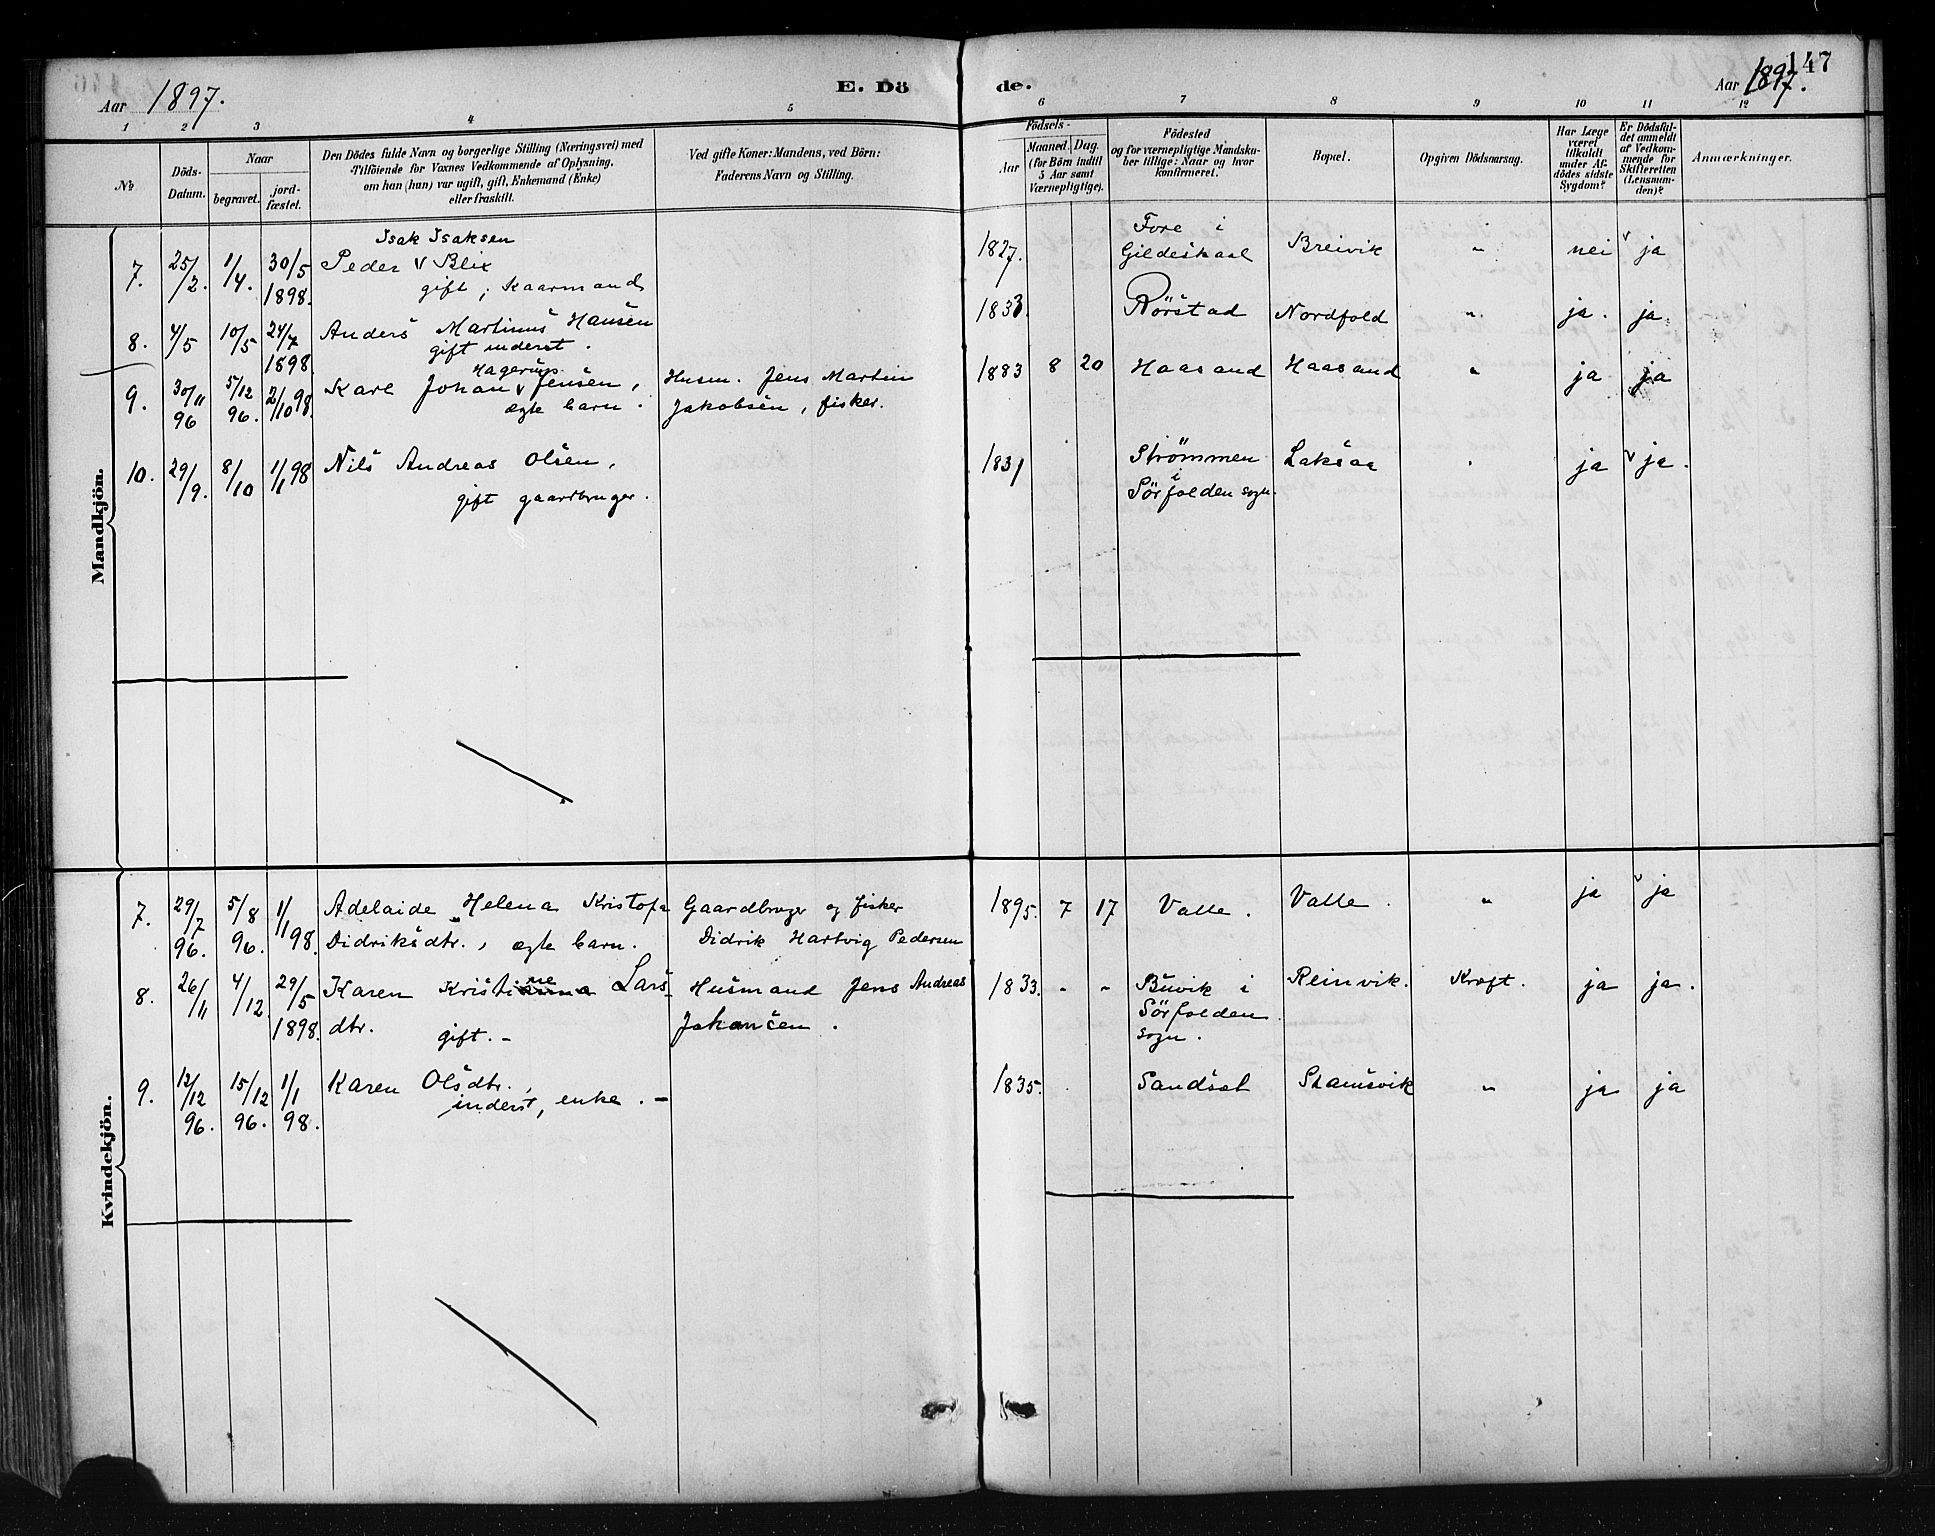 147
Aar 1897.
E. Dö
de.
Aar 1897.
1 2 3 4 5 6 7 8 9 10 11 12
№
Döds-Datum.
Naar
begravet.
jord-fæstet.
Den Dödes fulde Navn og borgerlige Stilling (Næringsvei) med
Tilföiende for Voxnes Vedkommende af Oplysning,
om han (hun) var ugift, gift, Enkemand (Enke)
eller fraskilt.
Ved gifte Koner: Mandens, ved Börn:
Faderens Navn og Stilling.
Födsels-
Aar
Maaned. Dag.
(for Börn indtil
5 Aar samt
Værnepligtige).
Födested
og for værnepligtige Mandska-
ber tillige: Naar og hvor
konfirmeret.
Bopæl.
Opgiven Dödsaarsag.
Har Læge
været
tilkaldt
under Af-
dödes sidste
Sygdom?
Er Dödsfal-
det anmeldt
af Vedkom-
mende for
Skifteretten
(Lensman-
den)?
Anmærkninger.
Mandkjön.
Isak Isaksen
7. 25/2. 1/4. 30/5 1898. Peder V Blix
gift, Kaarmand
1827. Fore i
Gildeskaal Breivik " nei v ja
8. 4/5 10/5 24/7 1898. Anders Martinus Hansen
gift inderst.
1833. Rörstad Nordfold " ja. ja.
Hagerup
9. 30/11 96 5/12 96. 2/10 98. Karl Johan v Jensen,
ægte barn.
Husm. Jens Martin
Jakobsen, fisker.
1883 8 20 Haasand Haasand " ja ja
10. 29/9. 8/10 1/1 98 Nils Andreas Olsen,
gift gaardbruger.
1831 Strömmen
i
Sörfolden sogn. Laksaa " ja v ja.
Kvindekjön.
7. 29/7 96. 5/8 96. 1/1 98. Adelaide Helena Kristofa
Didriksdtr., ægte barn.
Gaardbruger og fisker
Didrik Hartvig Pedersen
1895. 7 17 Valle. Valle. " ja v ja
8. 26/11 4/12. 29/5 1898. Karen Kristine Lars-
dtr. gift. -
Husmand Jens Andreas
Johansen.
1833. " " Buvik i
Sörfolden
sogn. Reinvik. Kræft. ja ja.
9. 12/12 96. 15/12 96. 1/1 98. Karen Olsdtr.,
inderst, enke. -
1835. Sandset Stamsvik " ja ja